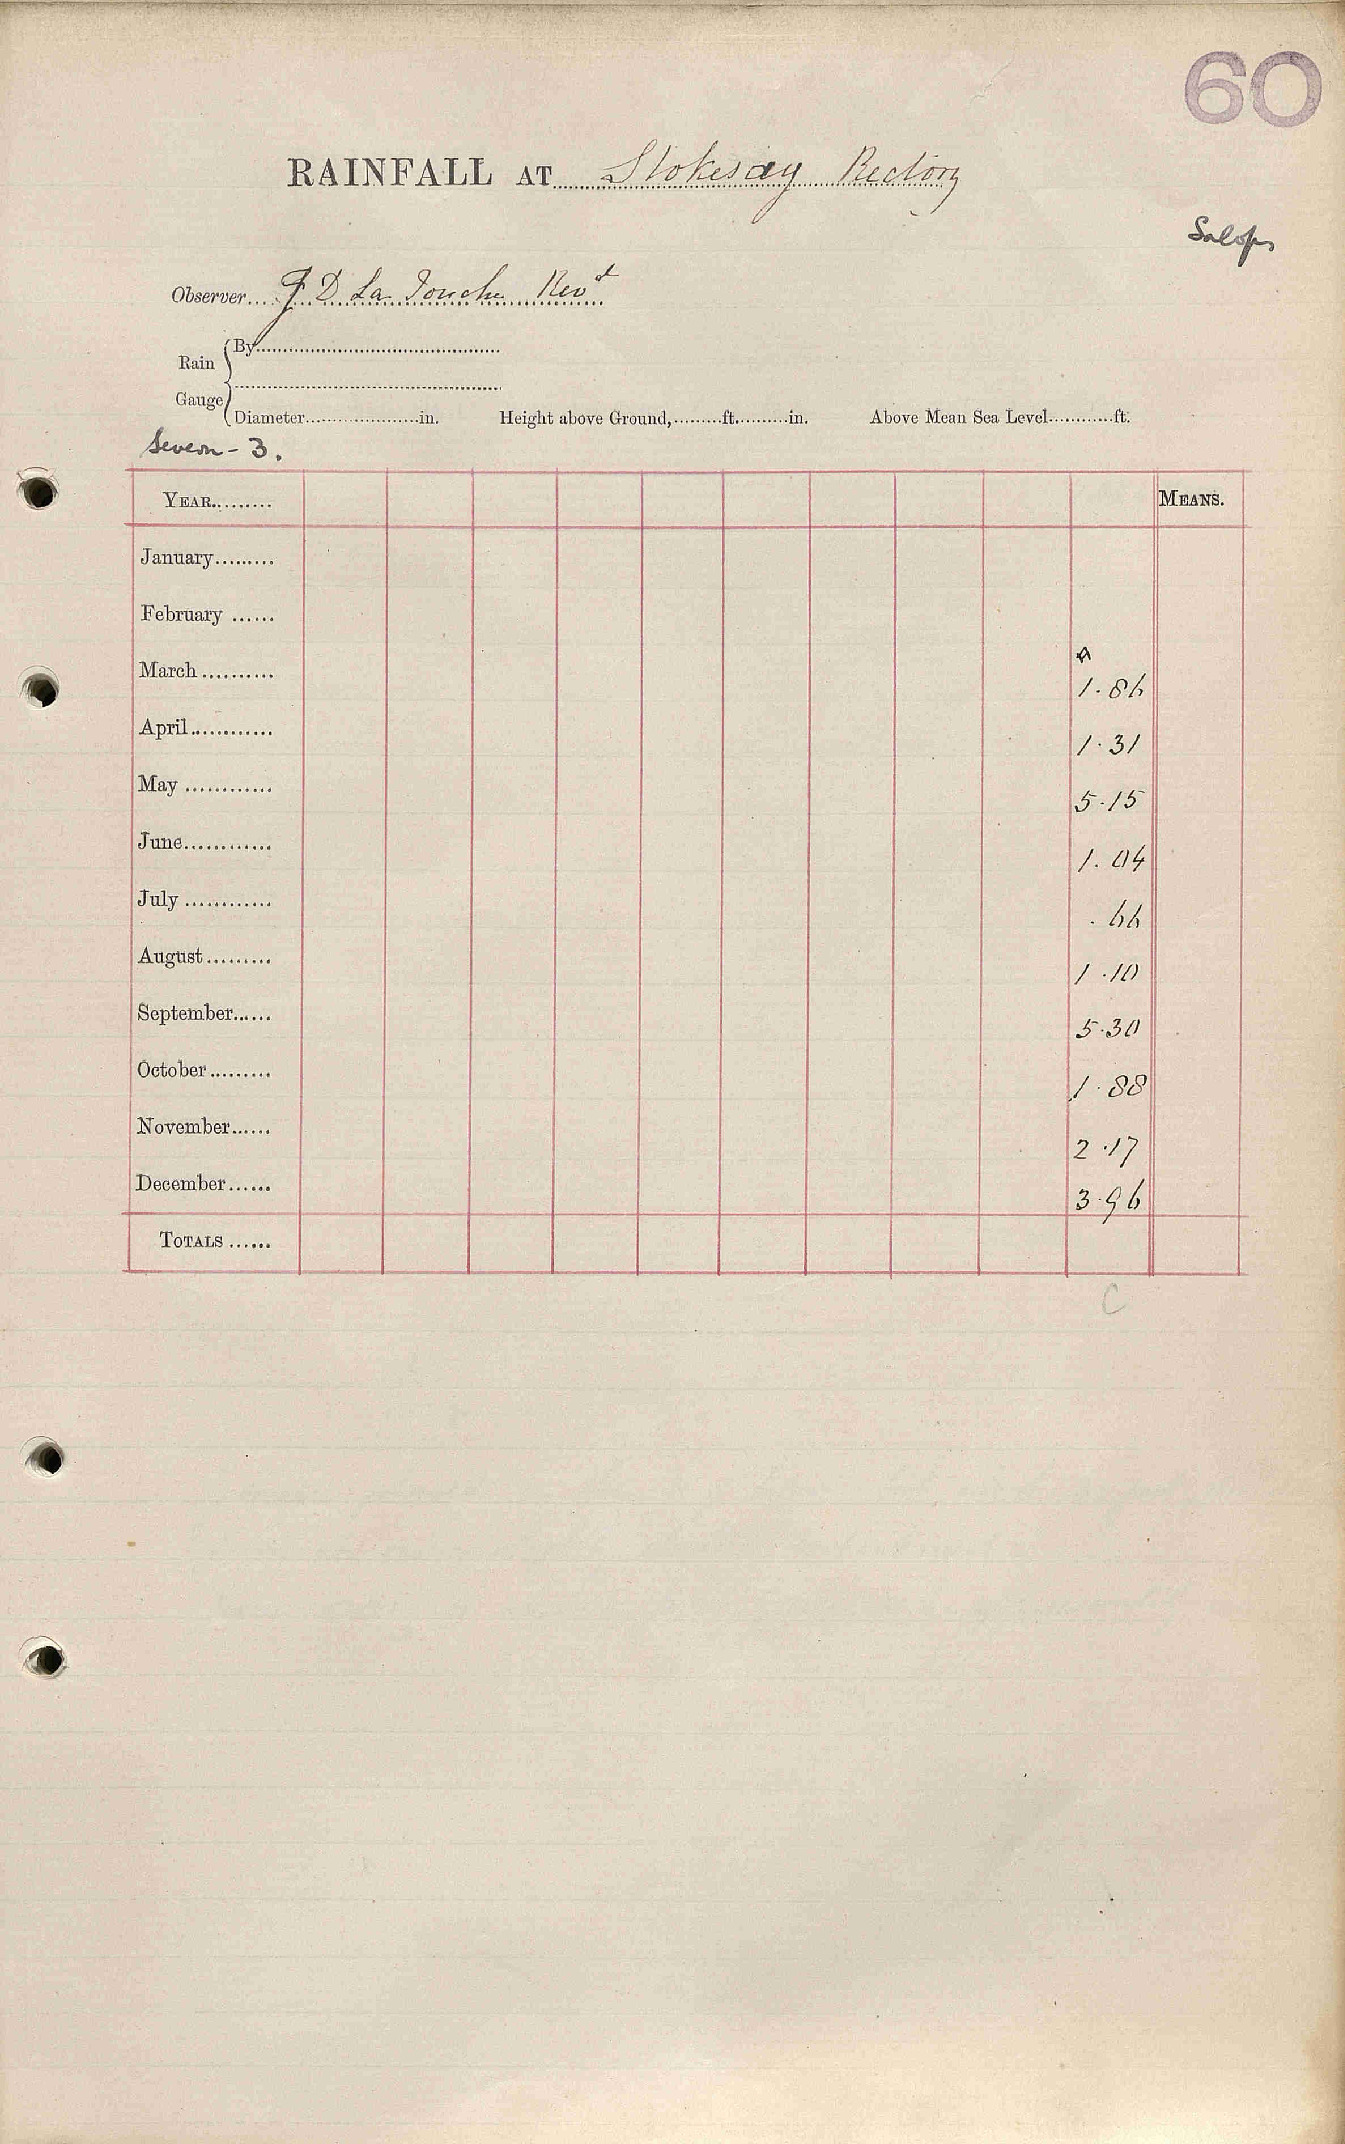 60
RAINFALL AT Stokesay Rectory
Salop
Observer.... J D La Touche Revd
Rain Gauge
By
Diameter....................in. Height above Ground,.........ft..........in. Above Mean Sea Level............ft.
Severn - 3.
YEAR......... MEANS.
January.........
February ......
March.......... a 1.86
April............ 1.31
May ............ 5.15
June............ 1.04
July ............ .66
August......... 1.10
September...... 5.30
October......... 1.88
November...... 2.17
December...... 3.96
TOTALS ......
C